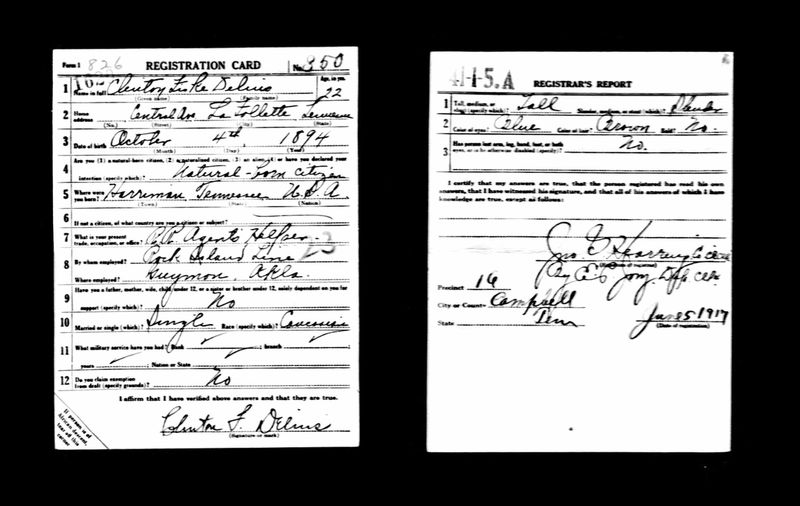 Form 1 826 REGISTRATION CARD No. 350
1 Name in full Clinton Fiske Delius Age, in yrs. 22
(Given name) (Family name)
2 Home address Central Ave LaFollette Tennessee
(No.) (Street) (City) (State)
3 Date of birth October 4th 1894
(Month) (Day) (Year)
4 Are you (1) a natural-born citizen, (2) a naturalized citizen, (3) an alien, (4) or have you declared your
intention (specify which)? Natural-born citizen
5 Where were you born? Harriman Tennessee U.S.A.
(Town) (State) (Nation)
6 If not a citizen, of what country are you a citizen or subject?
7 What is your present trade, occupation, or office? R.R. Agents Helper 23
8 By whom employed? Rock Island Line
Where employed? Guymon, Okla.
9 Have you a father, mother, wife, child under 12, or a sister or brother under 12, solely dependent on you for
support (specify which)? No
10 Married or single (which)? Single Race (specify which)? Caucasian
11 What military service have you had? Rank ; branch
years ; Nation or State
12 Do you claim exemption from draft (specify grounds)? No
I affirm that I have verified above answers and that they are true.
Clinton F. Delius
(Signature or mark)
If person is of
African descent,
tear off this
corner
41-1-5. A REGISTRAR'S REPORT
1 Tall, medium, or short (specify which)? Tall Slender, medium, or stout (which)? Slender
2 Color of eyes? Blue Color of hair? Brown Bald? No.
3 Has person lost arm, leg, hand, foot, or both
eyes, or is he otherwise disabled (specify)? No.
I certify that my answers are true, that the person registered has read his own
answers, that I have witnessed his signature, and that all of his answers of which I have
knowledge are true, except as follows:
(Signature of registrar)
Precinct 16
City or County Campbell
State Tenn June 5 1917
(Date of registration)